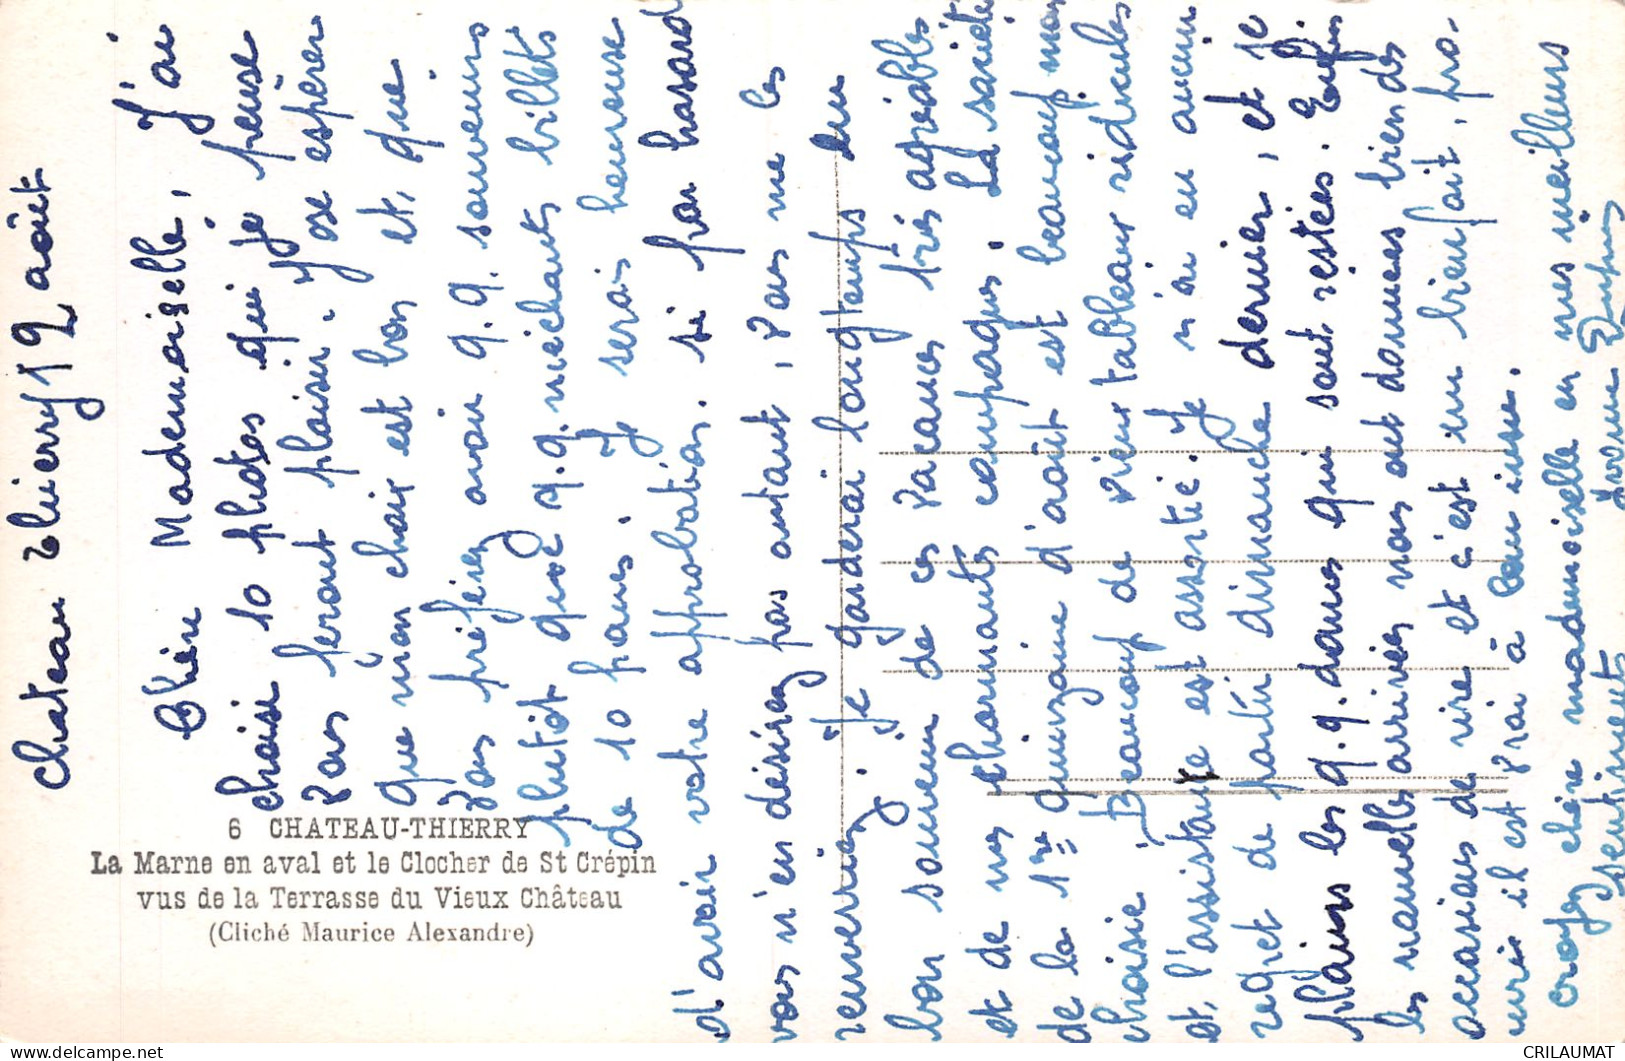 Chateau Thierry 12 août
Chère Mademoiselle, J'ai
choisi 10 photos qui je pense
vous feront plaisir. J'ose espérer
que mon choix est bon et, que
vous préférez avoir q.q. souvenirs
plutôt que q.q. méchants billets
de 10 francs. Je serais heureuse
d'avoir votre approbation. si par hasard
vous n'en désirez pas autant, vous me les
renverriez. Je garderai longtemps un
bon souvenir de ces vacances très agréables
et de mes charmantes compagnes. La société
de la 1re quinzaine d'août est beaucoup moins
choisie. Beaucoup de vieux tableaux ridicules
et, l'assistance est assortie. Je n'ai eu aucun
regret de partir dimanche dernier, et je
plains les q.q. dames qui sont restées. Enfin
les nouvelles arrivées nous ont données bien des
occasions de rire et c'est un bienfait, pro-
curé il est vrai à leur insu.
croyez chère mademoiselle en mes meilleurs
sentiments
6 CHATEAU-THIERRY
La Marne en aval et le Clocher de St Crépin
vus de la Terrasse du Vieux Château
(Cliché Maurice Alexandre)
https://www.delcampe.net
CRILAUMAT